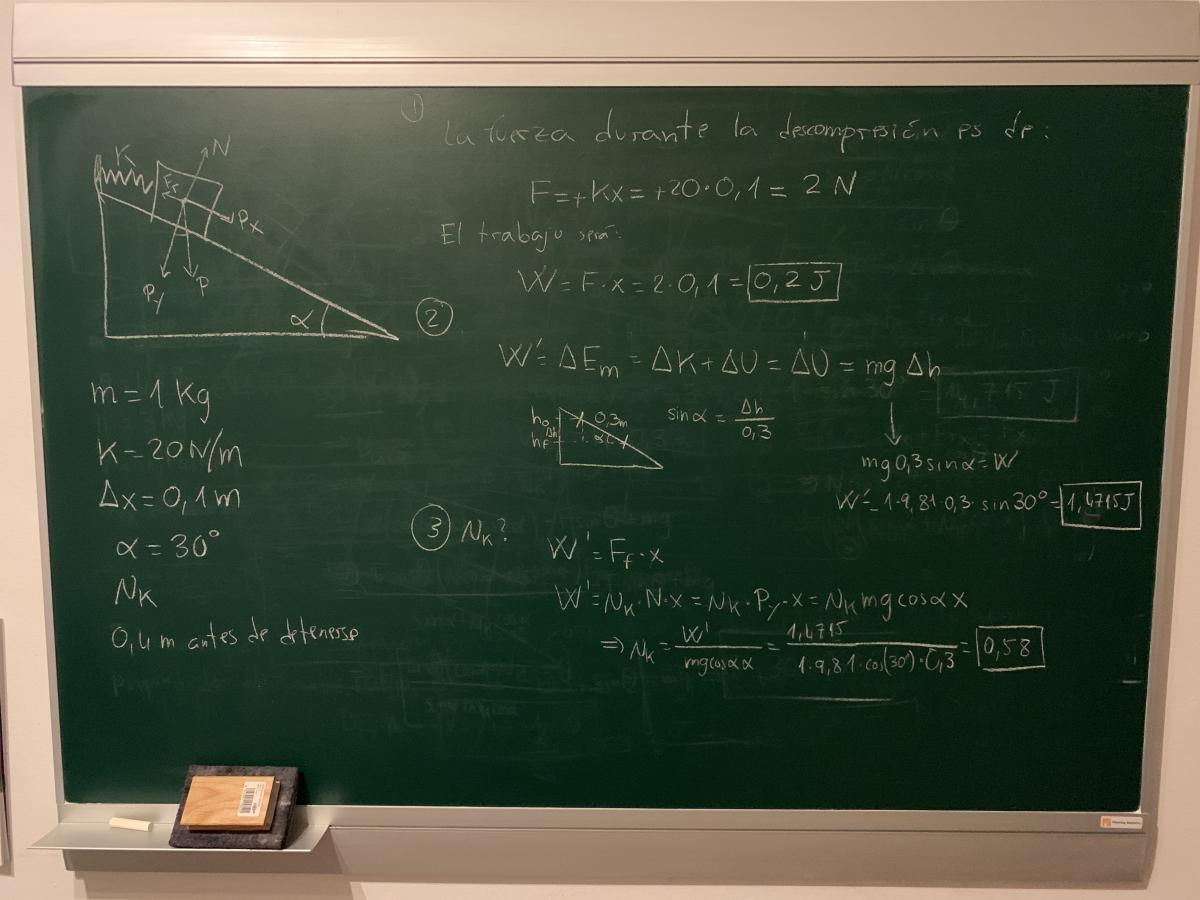 K
N
Fr
Px
Py
P
α
m=1 Kg
K=20N/m
Δx=0,1m
α=30°
NK
0,4 m antes de detenerse
①
La fuerza durante la descompresión es de:
F=+Kx=+20·0,1= 2 N
El trabajo será:
W=F·x=2·0,1=0,2 J
②
W'=ΔEm=ΔK+ΔU=ΔU=mgΔh
h0
Δh
hf
0,3m
α
sinα = Δh/0,3
mg0,3sinα=W
W'=1·9,81·0,3·sin30°=1,4715J
③ NK?
W'=Ff·x
W'=NK·N·x=NK·Py·x=NKmgcosαx
⇒NK=W'/mgcosαx=1,4715/1·9,81·cos(30°)·0,3=0,58